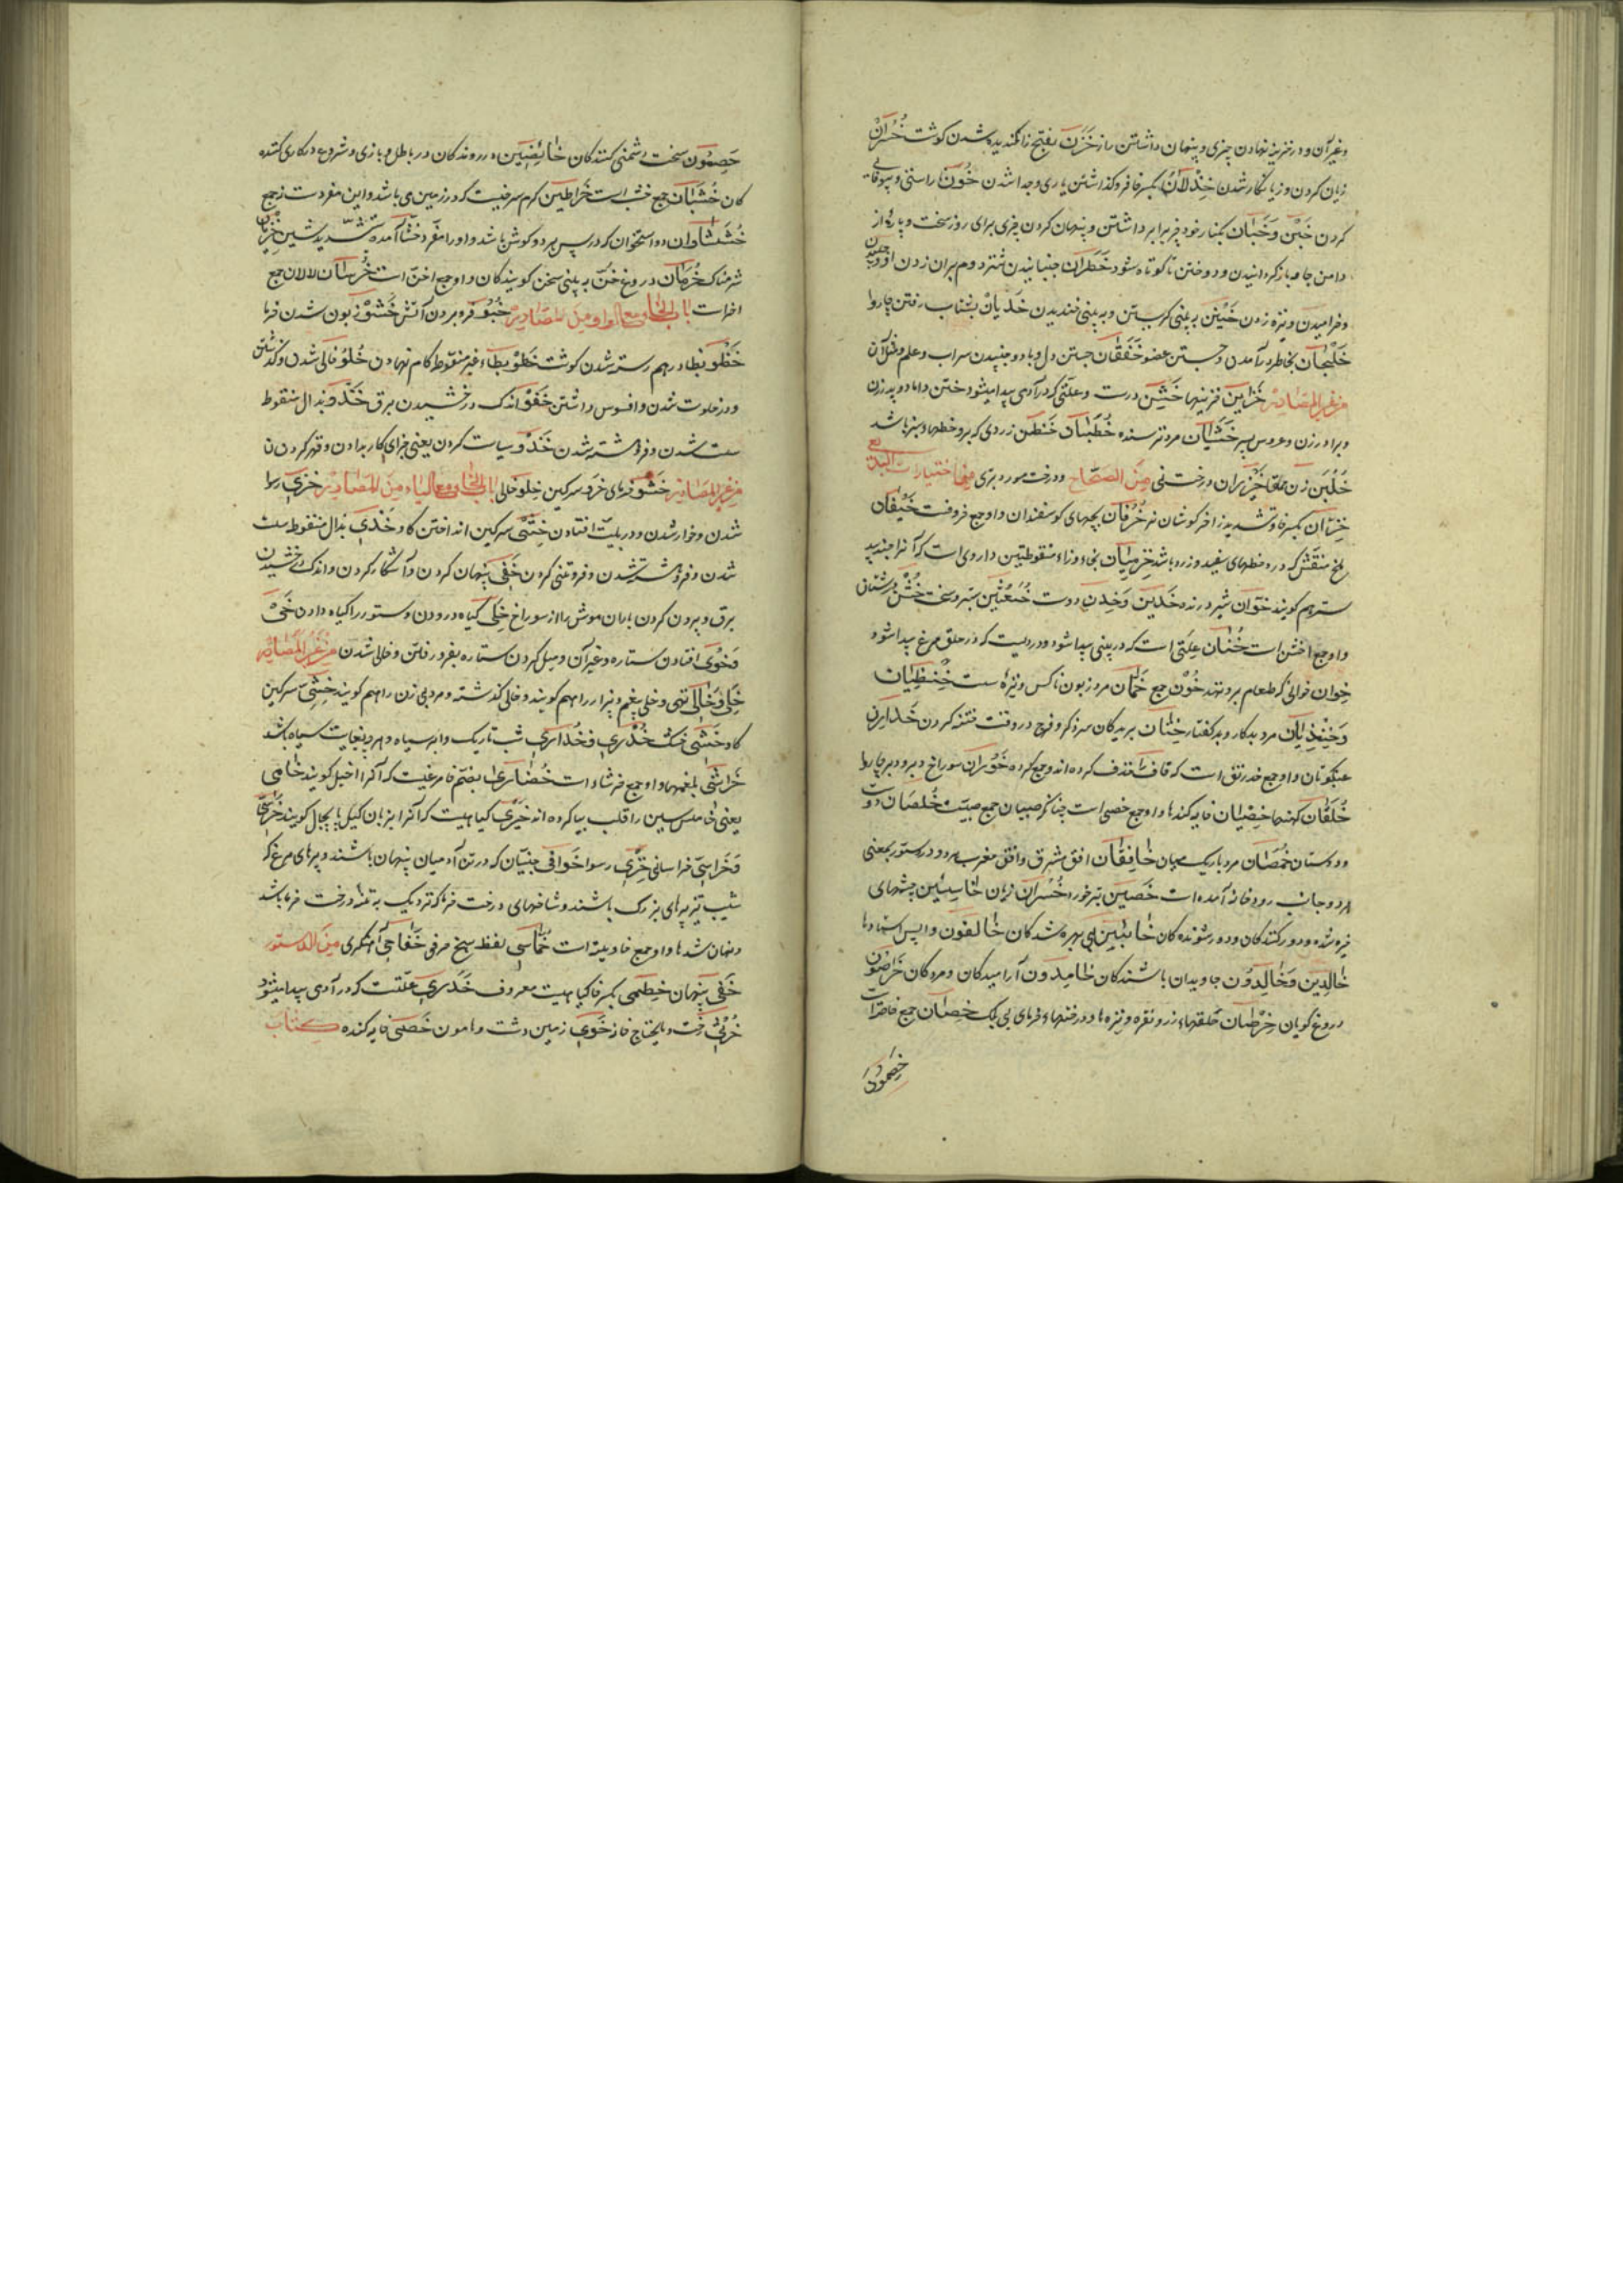 وغیر آن و در خزینه نهادن چیزی و پنهان داشتن راز خَزَن بفتح زا کندیده شدن کوشت خُسْرَان
زیان کردن و زیانکار شدن خِذْلَان بکسر خا فرو کذاشتن یاری و جدا شدن خَوْن ناراستی و بیوفایی
کردن خَبْن وَخِبَان بکنار خود چیز برابر داشتن و پنهان کردن چیزی برای روز سخت و پاره از
دامن جامه باز کردانیدن و دوختن تا کوتاه شود خَطَرَان جنبانیدن شتر دوم بران زدن او
و خرامیدن و نیزه زدن خَنِین به بینی کریستن و به بینی خندیدن خَدَیَان بشتاب رفتن چاروا
خَلَجَان بخاطر در آمدن و جستن عضو خَفَقَان جستن دل و باد و جنبیدن سراب و علم و مثل آن
من غیر المصادر خَزَایِن خزینها خَتَن درست و علتی که در آدمی پیدا میشود ختن داماد و پدر زن
و برادر زن و عروس پسر خَشْیَان مرد ترسنده خُطْبَان حنظل زردی که برو خطهاء سبز باشد
خَلْبَن زن حمقا خَیْزُرَان درخت نی من الصحاح و درخت مورد بری منها اختیارات البدیعی
خِزَّان بکسر خا و تشدید زا خرکوشان نر خُرْفَان بچهای کوسفندان و او جمع خروفست خَیْفَان
ملخ منقش که درو خطهای سفید و زرد باشد بخا و زاء منقوطتین داروی است که آنرا جندبید
ستر هم کویند خَوَّان شیر درنده خَدِین وَخِدْن دوست خُبَعْثِن ستبر و سخت خُشْن درشتان
و او جمع اخشن است خُنَان علتی است که در بینی پیدا شود و دردیست که در حلق مرغ پیدا شود
خِوَان خوانی که طعام برو نهند خُوْن جمع خَمَّان مرد زبون ناکس و نیزه سست خِنْظِیَان
وَخِنْذِیَان مرد بدکار و بد کفتار خِتَان بریدکان سر ذکر و فرج در وقت ختنه کردن خَدَارِن
عنکبوتان و او جمع خدرنق است که قاف را حذف کرده اند و جمع کرده خَوْرَان سوراخ دبر و دبر چاروا
خُلْقَان کهنها خِصْیَان خایه کندها و او جمع خصی است چنانکه صبیان جمع صبیست خُلْصَان دوست
و دوستان خُمْصَان مرد باریک میان خَافِقَان افق مشرق و افق مغرب و در دستور بمعنی
هر دو جانب رودخانه آمده است خَصِین تبر خورد خُسْرَان زیان خَاسِئِین چشمهای
خیره شده و دور کنندکان و دور شونده کان خَائِبِین بی بهره شدکان خَالِفُون واپس استادها
خَالِدِین وَخَالِدُون جاویدان باشندکان خَامِدُون آرامیدکان و مردکان خَرَّاصُون
دروغ کویان خِرْصَان حلقهاء زر و نقره و نیزه ها و درختهاء خرمای بی خِصْمَان
خَصِمُون
خَصِمُون سخت دشمنی کنندکان خَائِضِین در روندکان در باطل و بازی و شروع در کاری کننده
کان خُشْبَان جمع خشب است خَرَاطِین کرم سرخیست که در زمین می باشد و این مفردست نه جمع
خُشَشَاوَان دو استخوان که در پس هر دو کوش باشد و او را مفرد خشا آمده بتشدید شین خَزْیَان
شرمناک خُرْمَان دروغ خُنّ به بینی سخن کویندکان و او جمع اخن است خُرْسَان لالان جمع
اخرس است باب الخاء مع الواو من المصادر خُبُوّ فرو مردن آتش خَشْو زبون شدن خرما
خَظْو بظاء درهم رسته شدن کوشت خَطْو بطاء غیر منقوط کام نهادن خُلُوّ خالی شدن و کذشتن
و در خلوت شدن و افسوس داشتن خَفْو اندک درخشیدن برق خَذْو بذال منقوط
سست شدن و فرو هشته شدن خَزْو سیاست کردن یعنی جزای کار بد دادن و قهر کردن
من غیر المصادر خَشْو خرمای خِلْو خالی باب الخاء مع الیاء من المصادر خِزْی رسوا
شدن و خوار شدن و در بلیت افتادن خَثْی سرکین انداختن کاو خَذْی بذال منقوط سست
شدن و فرو هشته شدن و فروتنی کردن خَفْی پنهان کردن و آشکار کردن و اندک درخشیدن
برق و بیرون کردن باران موش را از سوراخ خَلْی کیاه درودن و ستور را کیاه دادن خَیّ
وَخُوِیّ افتادن ستاره و غیر آن و میل کردن ستاره بفرو رفتن و خالی شدن من غیر المصادر
خَلِی وَخَالِی تهی و خلی بیغم و بیزار را هم کویند و خالی کذشته و مرد بی زن را هم کویند خِثْی سرکین
کاو خَشِی خشک خُدْرِی وَخُدَارِی شب تاریک و ابر سیاه و هرچه بغایت سیاه باشد
خَرَاشِی بلغمها و او جمع خرشاء است خُضَارِی بضم خا مرغیست که آنرا اخیل کویند خَامِی
یعنی خامس سین را قلب بیا کرده اند خِیْرِی کیاهیست که آنرا بزبان کیل کویند خُرَاسِی
وَخُرَاسَنِی خراسانی خَزِی رسوا خَوَافِی جنیان که در تن آدمیان پنهان باشند و پرهای مرغ که
شیب تیز پرهای بزرک باشند و شاخهای درخت خرما که نزدیک به تنه درخت خرما باشد
و نهان شدها و او جمع خافیه است خُمَاسِی لفظ پنج حرفی خَفَاجِی آهنکری من الدستور
خَفِی پنهان خِطْمِی بکسر خا کیاهیست معروف خَدَرِی علتست که در آدمی پیدا میشود
خُرْثِی رخت و مایحتاج خانه خَوِی زمین دشت و هامون خَصِی خایه کنده کتاب